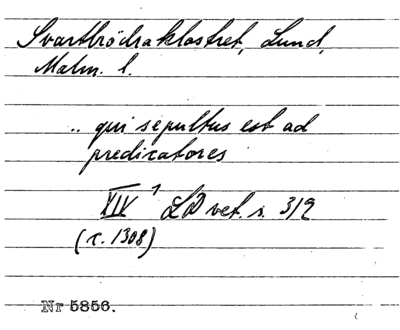 Svartbrödraklostret, Lund,
Malm. l.
.. qui sepultus est ad
predicatores
XIV 1 LD vet. s. 312
(c. 1308)
Nr 5856.